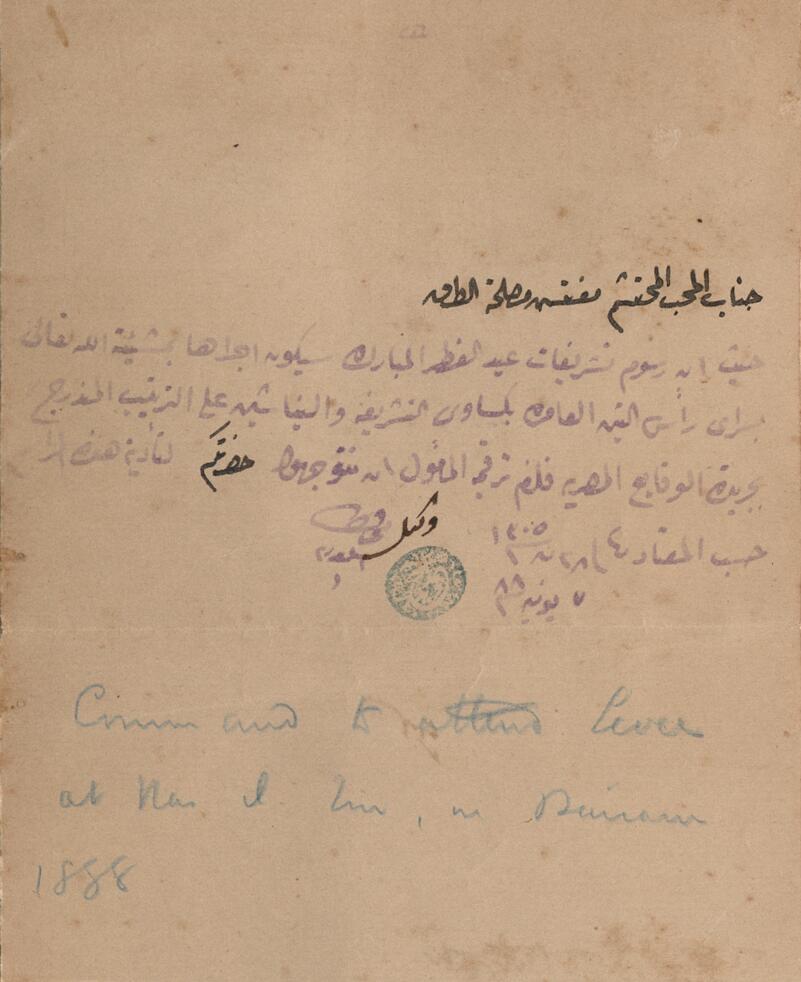 جناب المحب المحتشم مفتش مصلحة الطرق
حيث ان رسوم تشريفات عيد الفطر المبارك سيكون اجراها بمشيئة الله تعالى
بسراى رأس التين العامره بكساوى التشريفه والنياشين على الترتيب المندرج
بجريدة الوقايع المصريه فلزم ترقيمه المأمول ان تتوجهوا حضرتكم لتأدية هذه
حسب المعتاد ١٣٠٥
٧ يونيه ٨٨
وكيل
Command to attend Levee
at Ras el Tin, on Bairam
1888